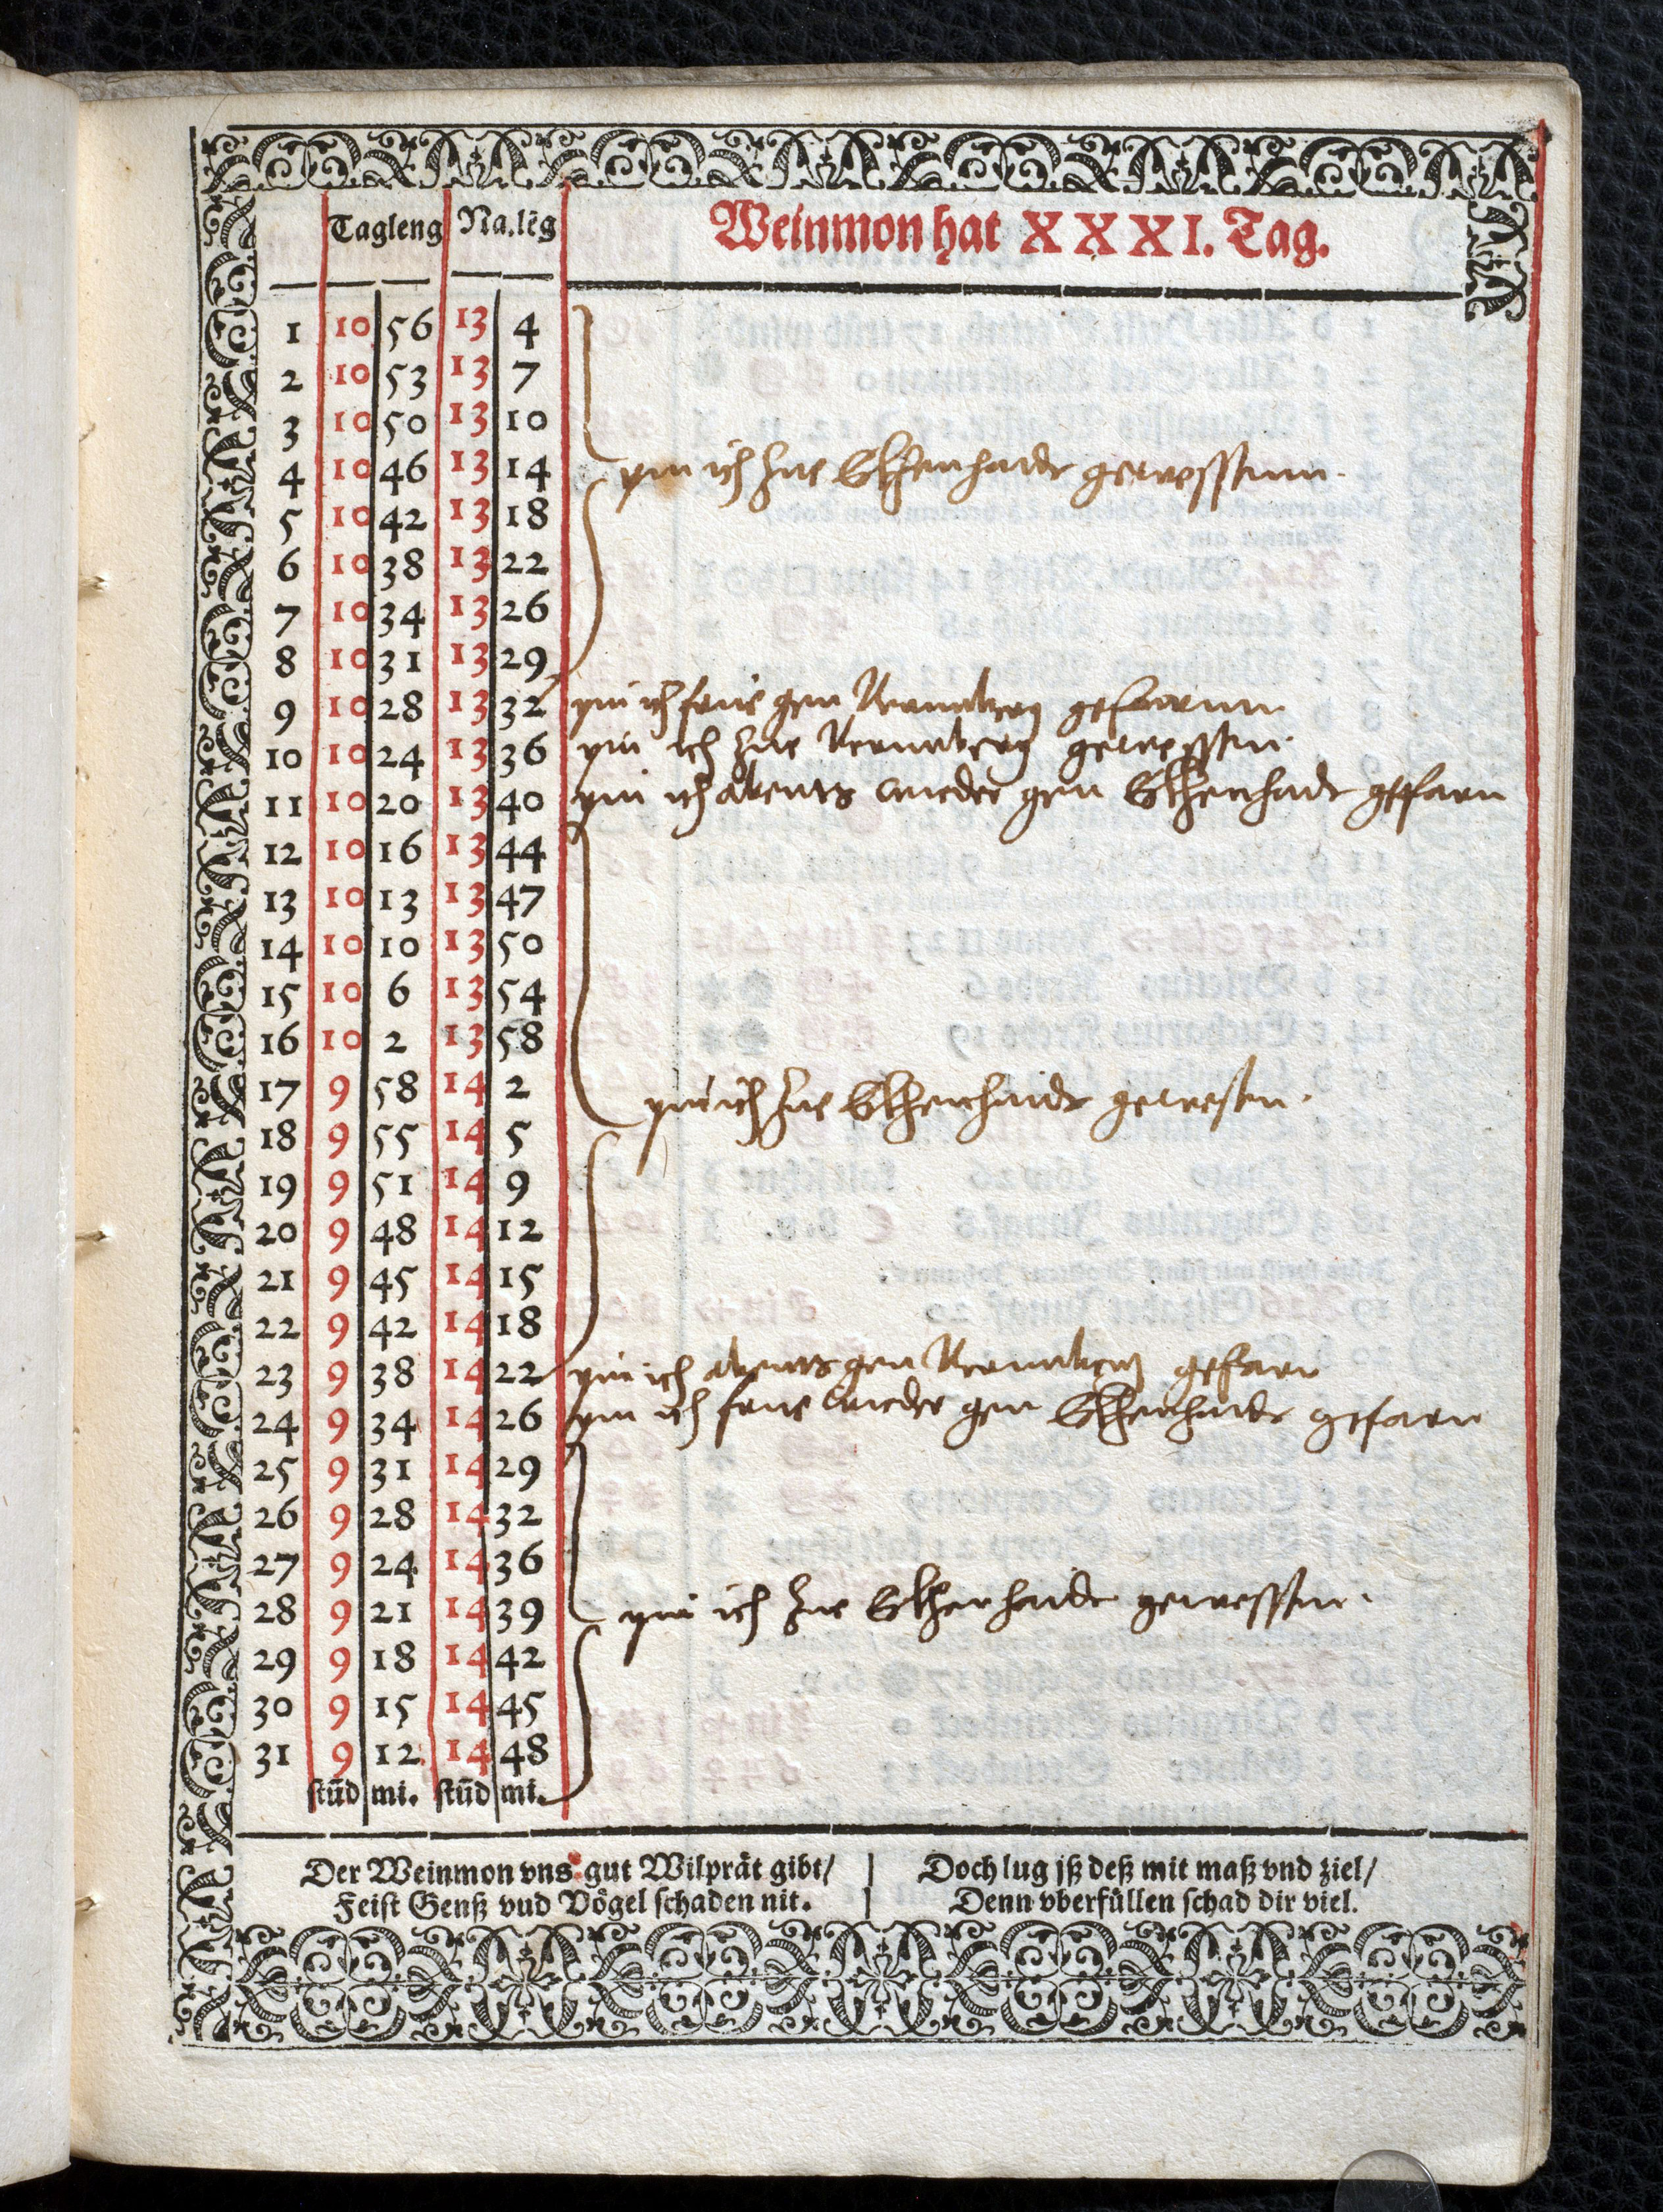 Tagleng Na.lēg Weinmon hat XXXI. Tag.
1 10 56 13 4
2 10 53 13 7
3 10 50 13 10
4 10 46 13 14 pin ich zue gewessenn.
5 10 42 13 18
6 10 38 13 22
7 10 34 13 26
8 10 31 13 29
9 10 28 13 32 pin ich frue gen Nurmberg gefarnn
10 10 24 13 36 pin ich zue Nurmberg gewessen.
11 10 20 13 40 pin ich abents wieder gen gefarn
12 10 16 13 44
13 10 13 13 47
14 10 10 13 50
15 10 6 13 54
16 10 2 13 58
17 9 58 14 2 pin ich zue gewesen.
18 9 55 14 5
19 9 51 14 9
20 9 48 14 12
21 9 45 14 15
22 9 42 14 18
23 9 38 14 22 pin ich abents gen Nurmberg gefarn
24 9 34 14 26 pin ich frue wieder gen gefarn
25 9 31 14 29
26 9 28 14 32
27 9 24 14 36
28 9 21 14 39 pin ich zue gewessen.
29 9 18 14 42
30 9 15 14 45
31 9 12 14 48
stūd mi. stūd mi.
Der Weinmon vns gut Wilprät gibt/
Feist Genß vnd Vögel schaden nit.
Doch lug jß deß mit maß vnd ziel/
Denn vberfüllen schad dir viel.